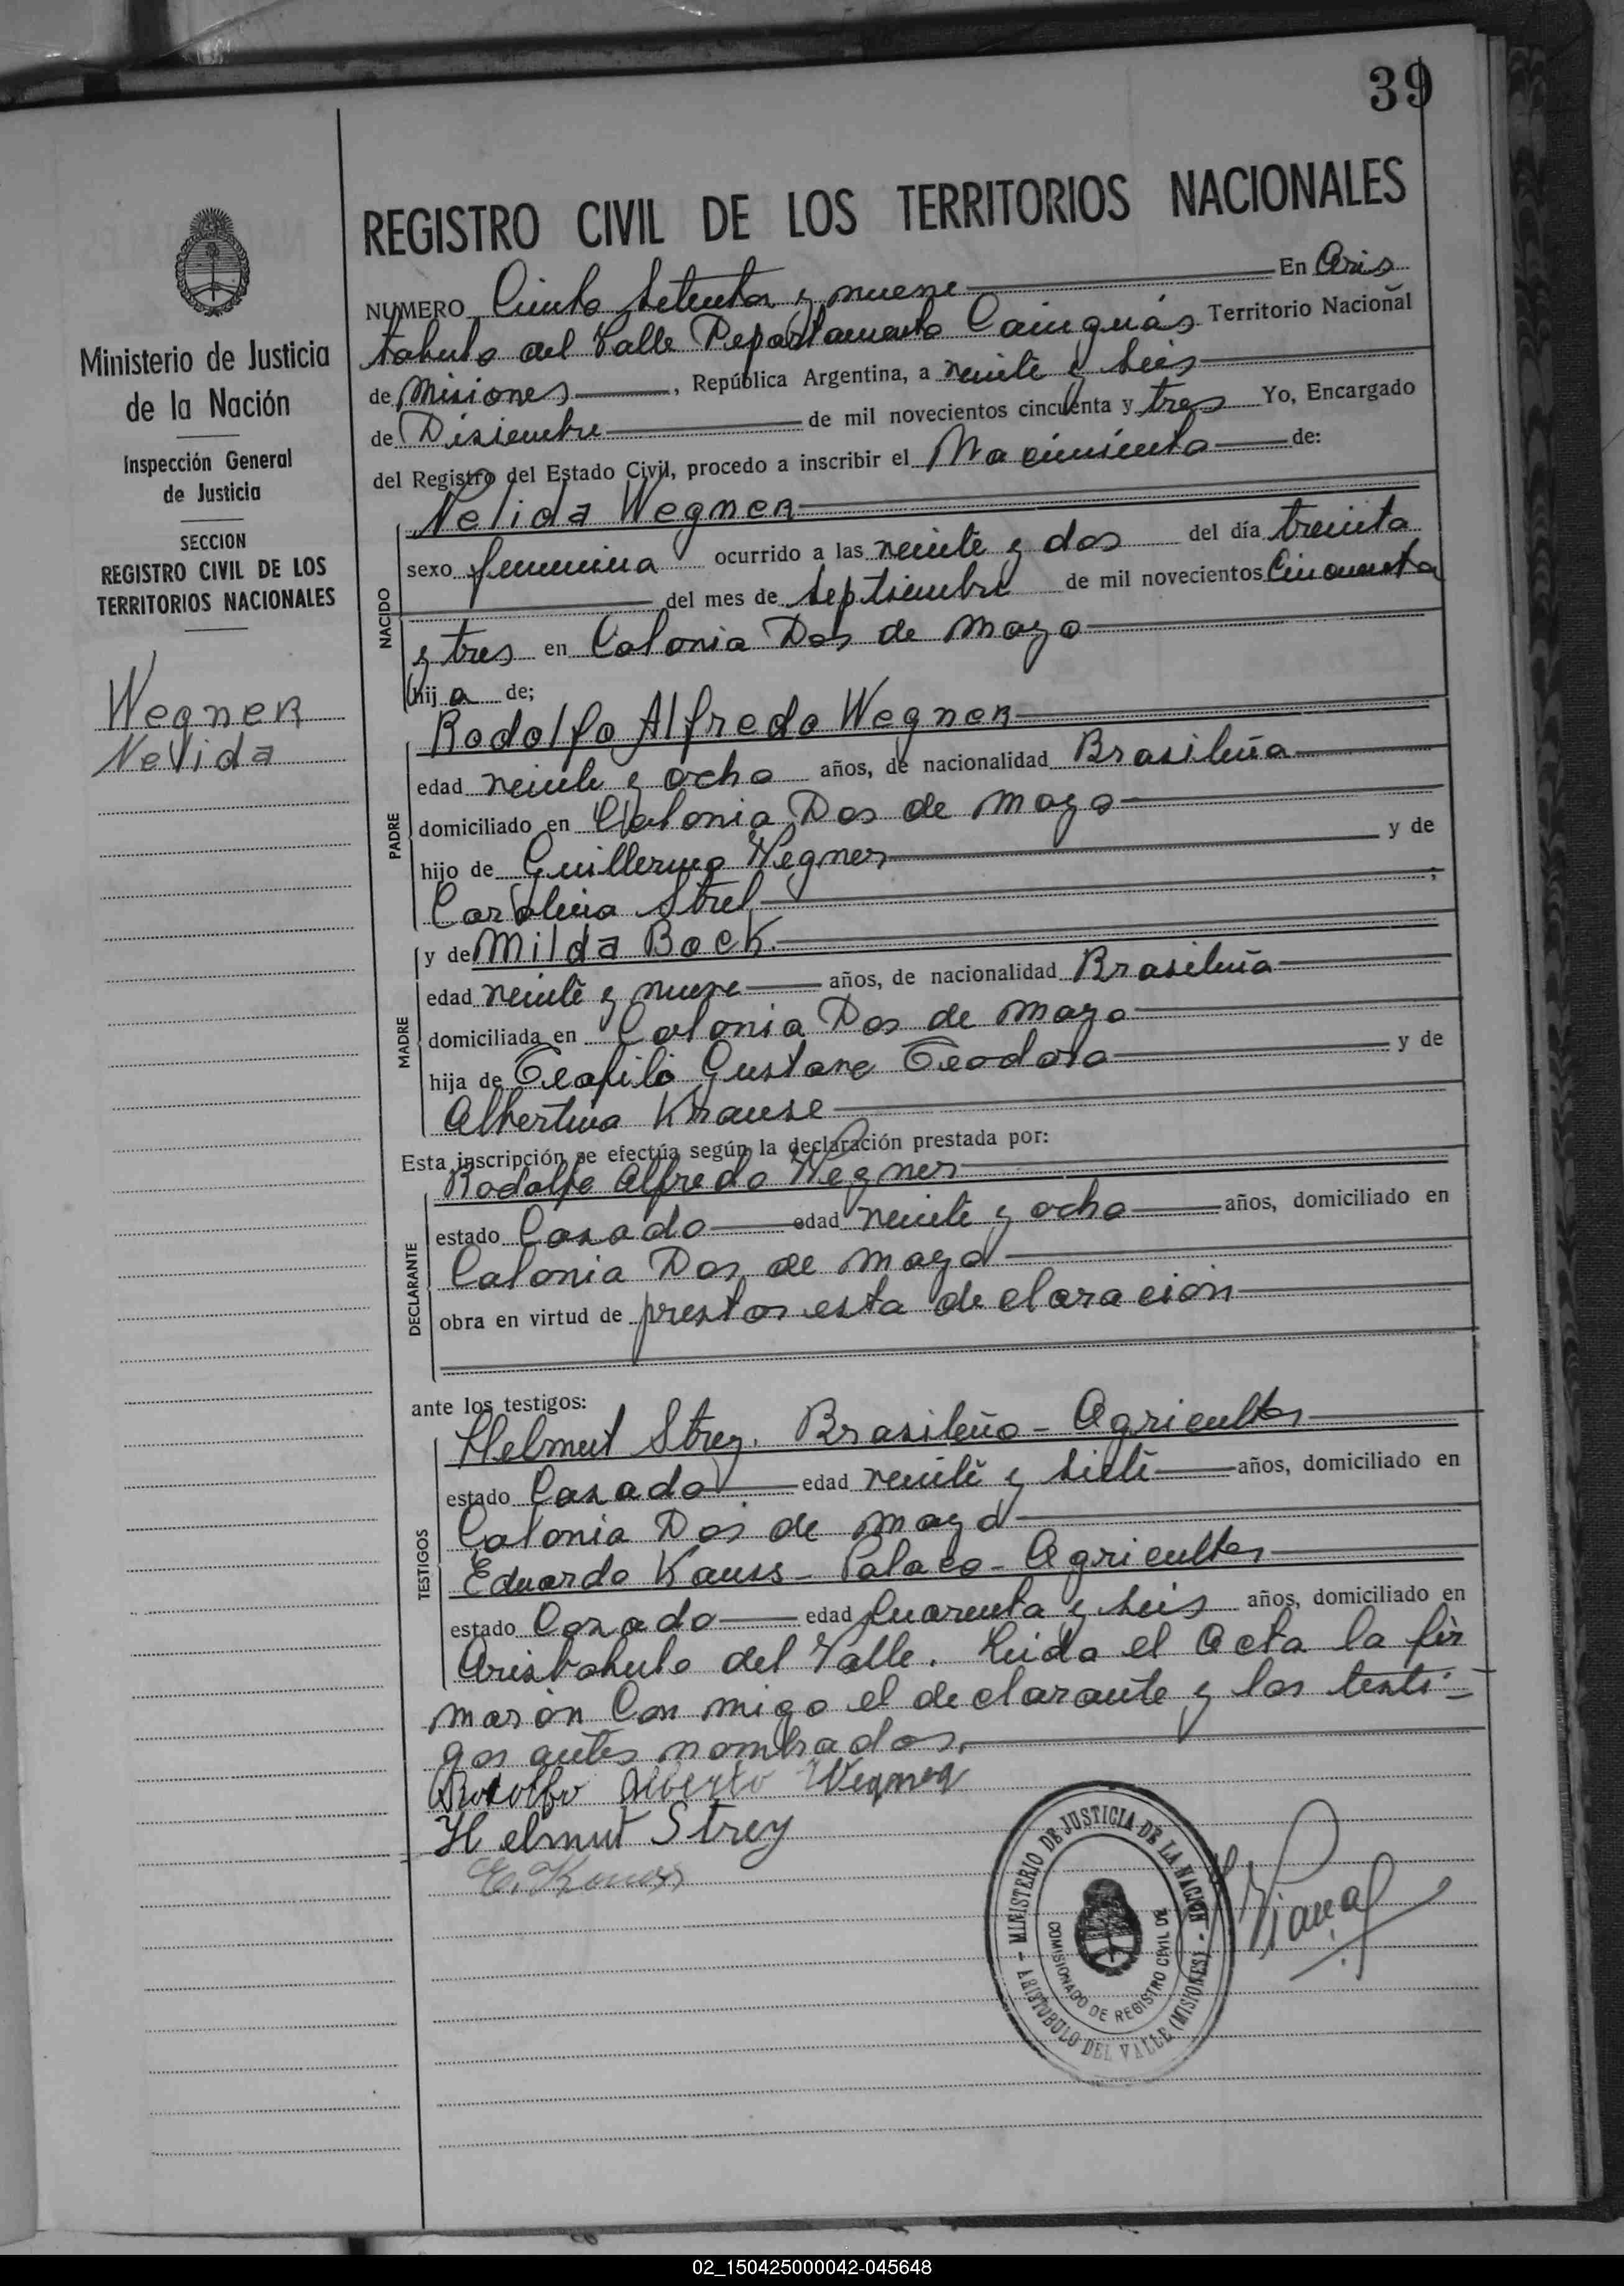 39
REGISTRO CIVIL DE LOS TERRITORIOS NACIONALES
Ministerio de Justicia
de la Nación
Inspección General
de Justicia
SECCION
REGISTRO CIVIL DE LOS
TERRITORIOS NACIONALES
Wegner
Nelida
NUMERO Ciento setenta y nueve En Aris
tobulo del Valle Departamento Cainguás Territorio Nacional
de Misiones, República Argentina, a veinte y seis
de Disiembre de mil novecientos cincuenta y tres Yo, Encargado
del Registro del Estado Civil, procedo a inscribir el Nacimiento de:
NACIDO
Nelida Wegner
sexo femenina ocurrido a las veinte y dos del día treinta
del mes de septiembre de mil novecientos cincuenta
y tres en Colonia Dos de Mayo
hija de;
PADRE
Rodolfo Alfredo Wegner
edad veinte y ocho años, de nacionalidad Brasileña
domiciliado en Colonia Dos de Mayo
hijo de Guillermo Wegner y de
Carolina Strel;
MADRE
y de Milda Bock.
edad veinte y nueve años, de nacionalidad Brasileña
domiciliada en Colonia Dos de Mayo
hija de Teofilo Gustavo Teodoro y de
Albertina Krause
Esta inscripción se efectúa según la declaración prestada por:
DECLARANTE
Rodolfo Alfredo Wegner
estado Casado edad veinte y ocho años, domiciliado en
Colonia Dos de Mayo
obra en virtud de prestar esta declaración
ante los testigos:
TESTIGOS
Helmut Strey. Brasileño - Agricultor
estado Casado edad veinte y siete años, domiciliado en
Colonia Dos de Mayo
Eduardo Kauss - Polaco - Agricultor
estado Casado edad Cuarenta y seis años, domiciliado en
Aristobulo del Valle. Leida el Acta la fir
maron Con migo el declarante y los testi-
gos antes nombrados.
Rodolfo Alberto Wegner
Helmut Strey
E. Kauss
MINISTERIO DE JUSTICIA DE LA NACION
COMISIONADO DE REGISTRO CIVIL
ARISTOBULO DEL VALLE (MISIONES)
02_150425000042-045648